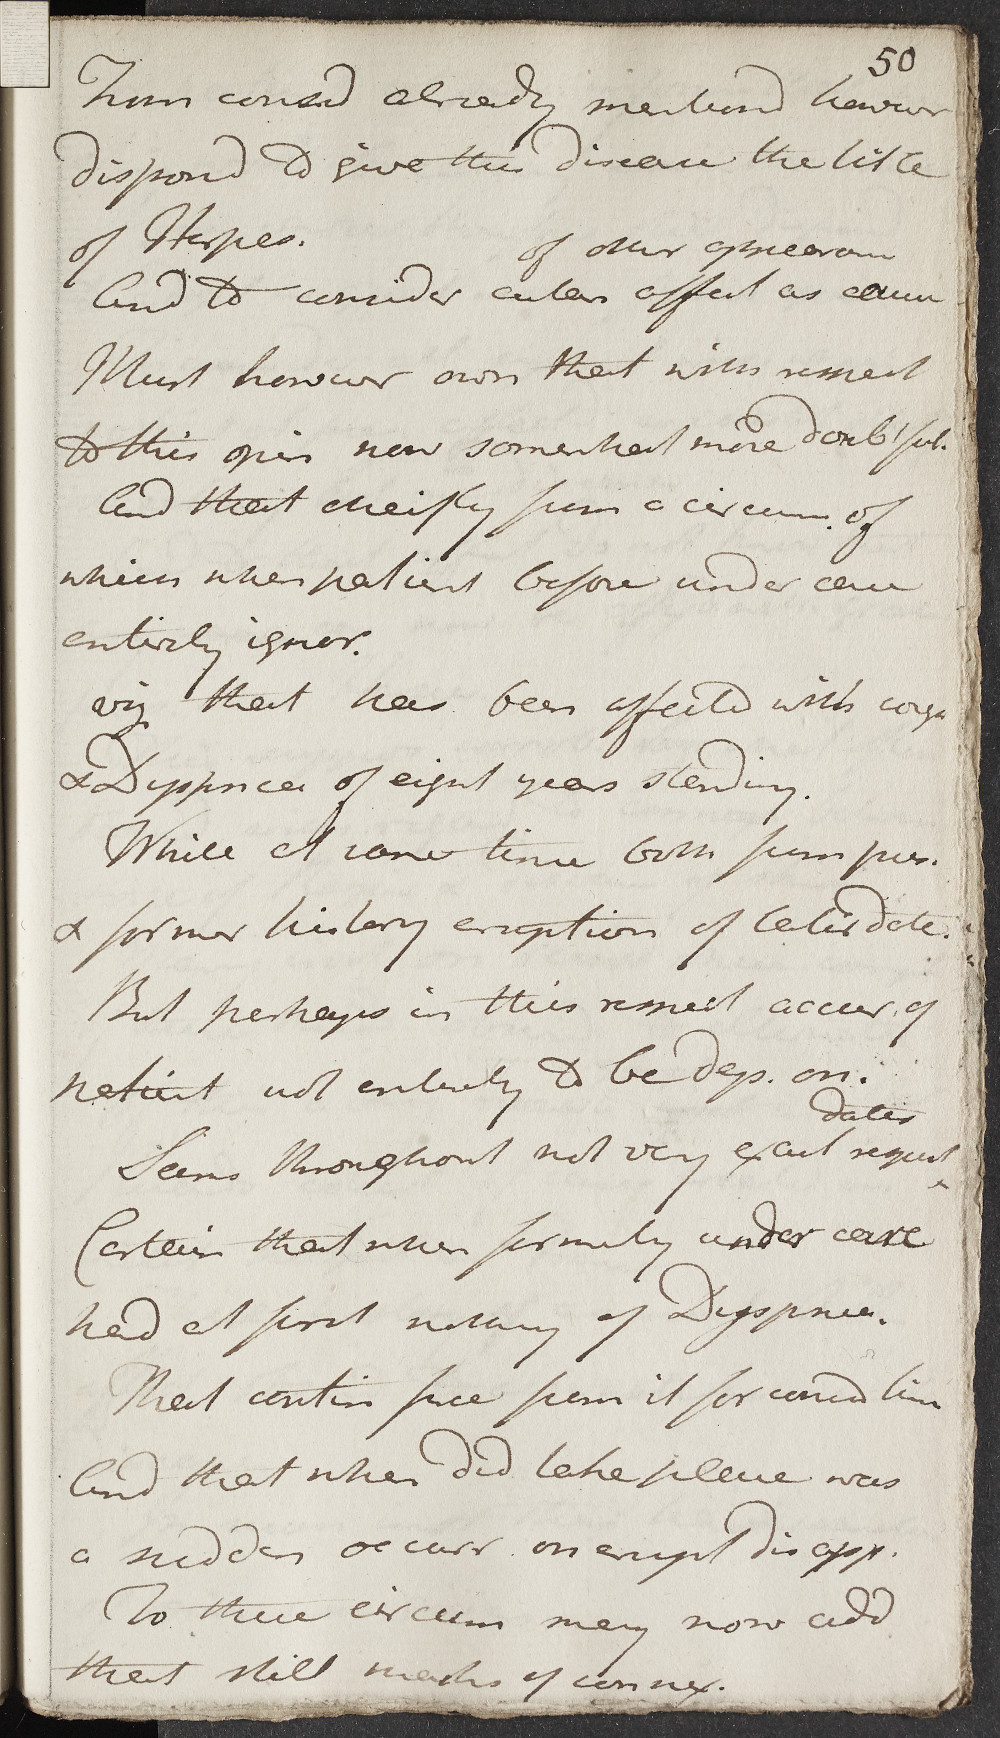 50
From consid already mentiond however
disposd to give this disease the title
of Herpes.
of other appearan
And to consider cutan affect as caus
Must however own that with respect
to this opin now somewhat more doubtful.
And that cheifly from a circum. of
which when patient before under care
entirely ignor.
viz that has been affectd with cough
& Dyspnoea of eight years standing.
While at same time both from pres.
& former history eruption of later date.
But perhaps in this respect accur. of
patient not entirely to be dep. on.
dates
Seems throughout not very exact respect
Certain that when formerly under care
had at first nothing of Dyspnoea.
That contin free from it for consid tim
And that when did take place was
a sudden occurr on erupt disapp.
To these circum may now add
that still marks of connex.